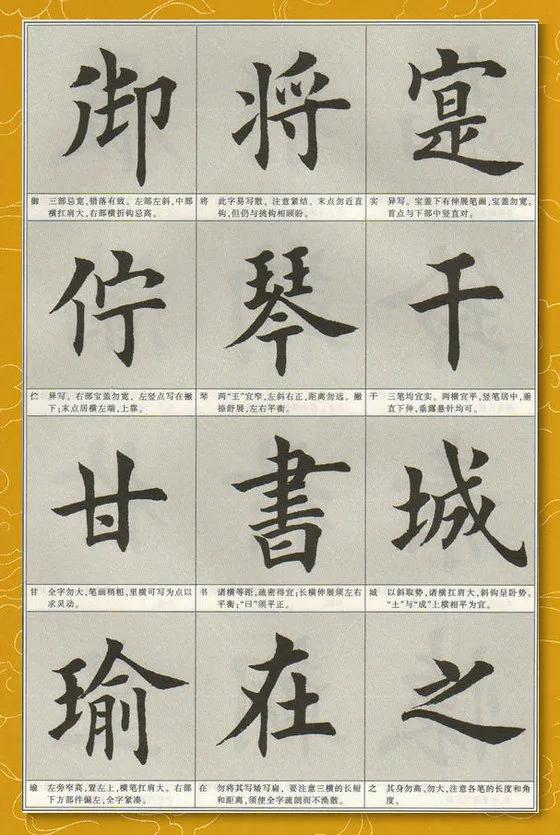 御 将 寔
御 三部忌宽,错落有致。左部左斜,中部横扛肩大,右部横折钩忌高。
将 此字易写散,注意紧结。末点勿近直钩,但仍与挑钩相顾盼。
实 异写。宝盖下有伸展笔画,宝盖勿宽。首点与下部中竖直对。
佇 琴 干
伫 异写。右部宝盖勿宽,左竖点写在撇下;末点居横左端,上靠。
琴 两“王”宜窄,左斜右正,距离勿远。撇捺舒展,左右平衡。
干 三笔均宜实。两横宜平,竖笔居中,垂直下伸,垂露悬针均可。
甘 書 城
甘 全字勿大,笔画稍粗,里横可写为点以求灵动。
书 诸横等距,疏密得宜;长横伸展须左右平衡;“曰”须平正。
城 以斜取势,诸横扛肩大,斜钩呈盼势。“土”与“成”上横相平为宜。
瑜 在 之
瑜 左旁窄高,置左上,横笔扛肩大。右部下方部件偏左,全字紧凑。
在 勿将其写矮写扁,要注意三横的长短和距离,须使全字疏朗而不涣散。
之 其身勿高、勿大,注意各笔的长度和角度。